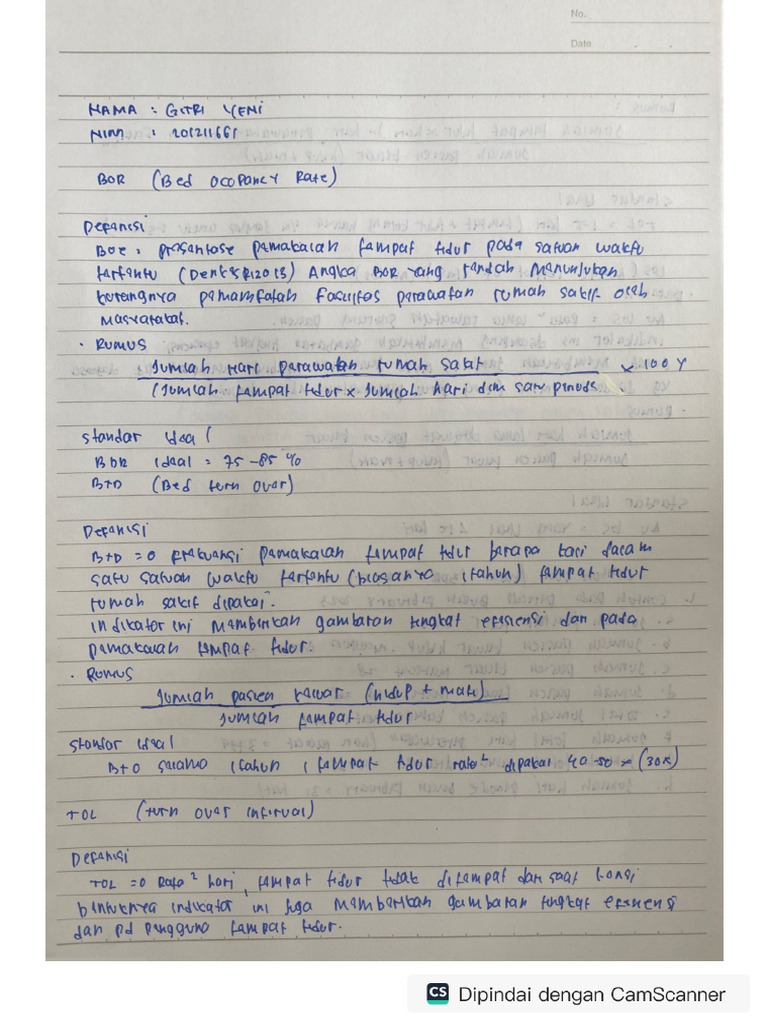 No.
Date
NAMA : GITRI YENI
NIM : 201211661
BOR (Bed Ocopancy Rate)
Defanisi
BOR : prosantase pamakaian tampat tidur pada satuan waktu
tartantu (Denkes RI 2013) Angka BOR yang randah Manunjukan
kurangnya pamamfatah Fasilitas parawatan rumah sakit oleh
Masyarakat.
• Rumus
Jumlah Hari parawatan rumah sakit
x 100 %
(Jumlah tampat tidur x Jumlah hari dlm satu pinods
Standar ideal
BOR ideal = 75 - 85 %
BTO (Bed turn Over)
Defanisi
BTO = frakuansi pamakaian tampat tidur barapa kari dalam
satu satuan waktu tartantu (biasanya 1 tahun) tampat tidur
rumah sakit dipakai.
indikator ini Mambarikan gambaran tingkat efisiensi dari pada
pamakaian tampat tidur.
• Rumus
Jumlah pasien kaluar (hidup + mati)
Jumlah tampat tidur
Standar ideal
BTO salama 1 tahun 1 tampat tidur rata² dipakai 40 - 50 x (30x)
TOL (turn over infirval)
Defanisi
TOL = Rata² hari, tampat tidur tidak ditampat dari saat
indikator ini juga Mambarikan gambaran tingkat efisiensi
dan pd pengguna tampat tidur.
CS Dipindai dengan CamScanner